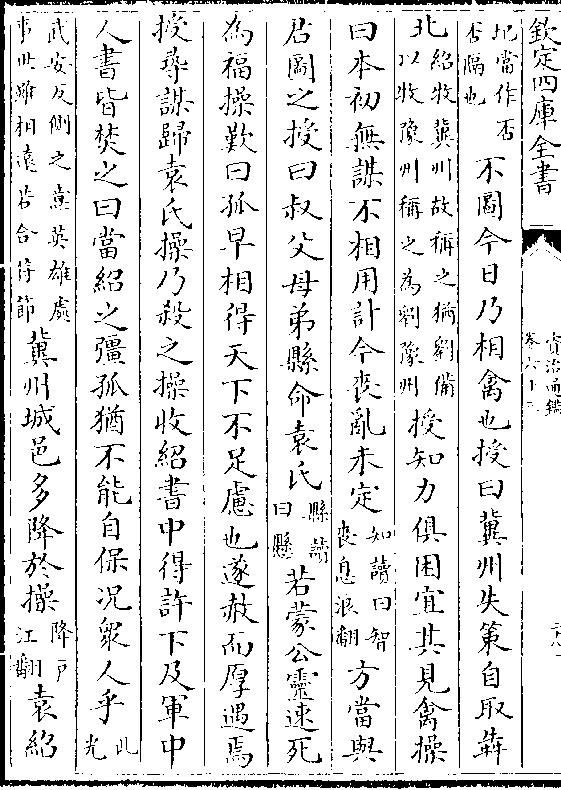 欽定四庫全書
資治通鑑
卷六十三
圮當作否
否隔也
不圖今日乃相禽也授曰冀州失策自取犇
北
紹牧冀州故稱之猶劉備
以牧豫州稱之為劉豫州
授知力俱困宜其見禽操
曰本初無謀不相用計今喪亂未定
知讀曰智
喪息浪翻
方當與
君圖之授曰叔父母弟縣命袁氏
縣讀
曰懸
若蒙公靈速死
為福操歎曰孤早相得天下不足慮也遂赦而厚遇焉
授尋謀歸袁氏操乃殺之操收紹書中得許下及軍中
人書皆焚之曰當紹之彊孤猶不能自保况衆人乎
此
光
武安反側之意英雄處
事世雖相遠若合符節
冀州城邑多降於操
降户
江翻
袁紹